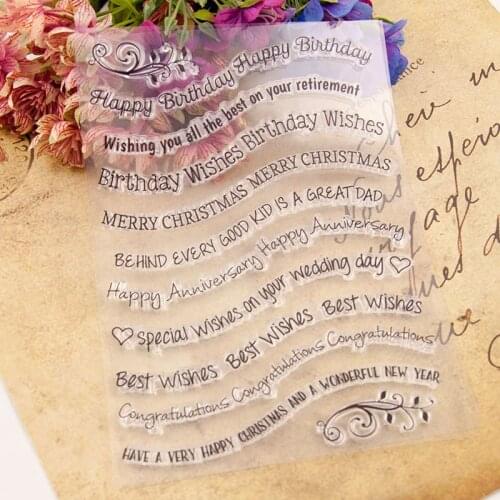 Happy Birthday Happy Birthday
Wishing you all the best on your retirement
Birthday Wishes Birthday Wishes
MERRY CHRISTMAS MERRY CHRISTMAS
BEHIND EVERY GOOD KID IS A GREAT DAD
Happy Anniversary Happy Anniversary
special wishes on your wedding day
Best Wishes Best Wishes Best Wishes
Congratulations Congratulations Congratulations
HAVE A VERY HAPPY CHRISTMAS AND A WONDERFUL NEW YEAR